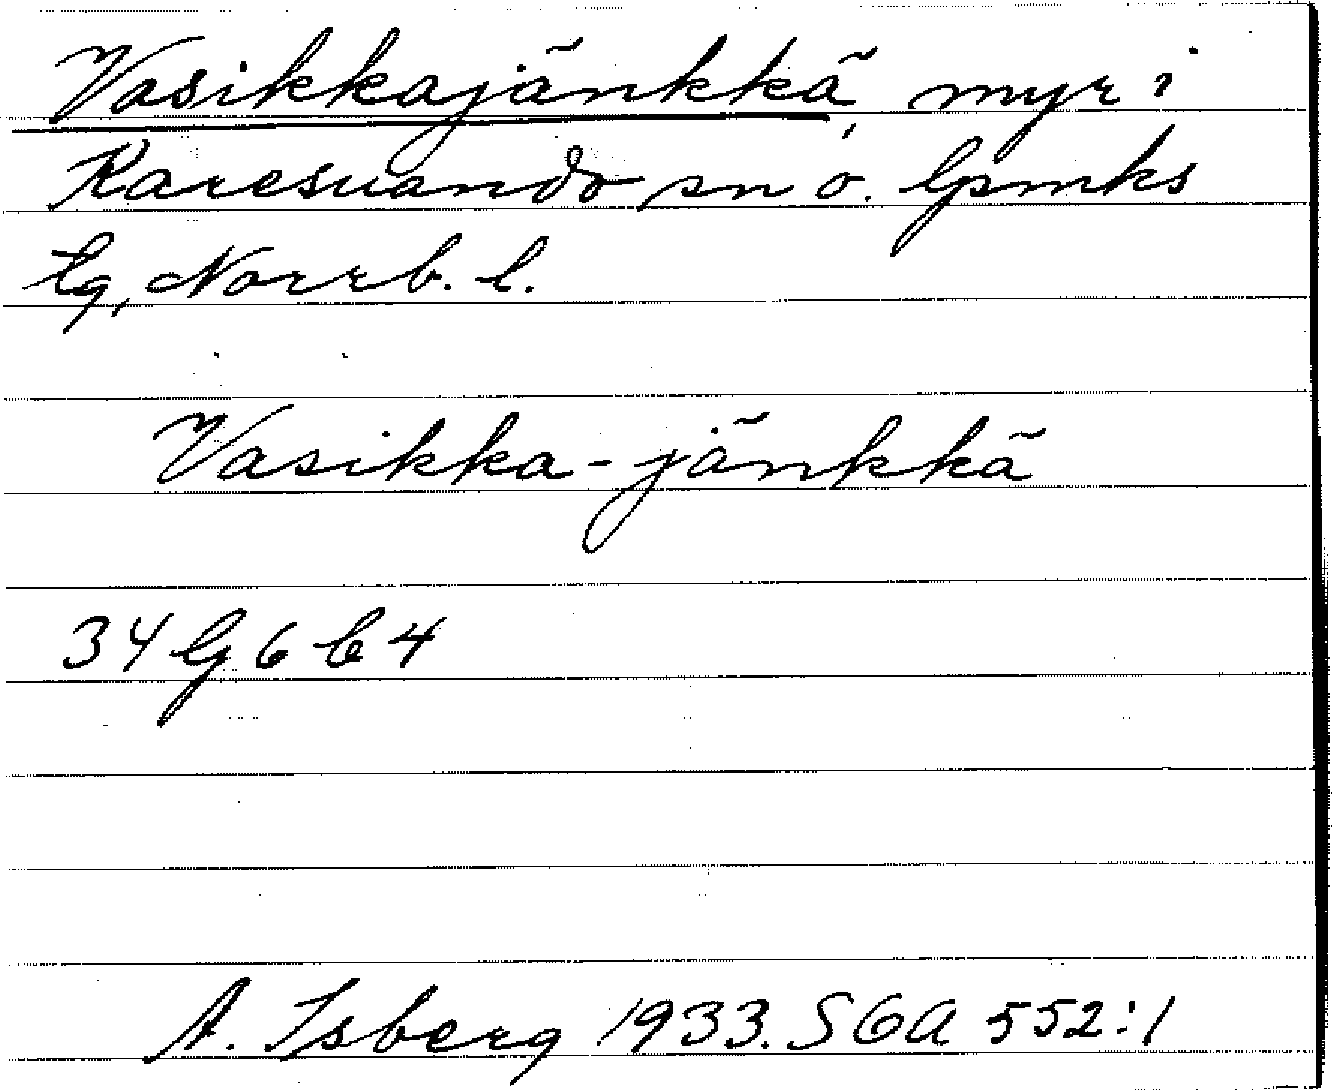 Vasikkajänkkä, myr i
Karesuando sn o. lpmks
tg, Norrb. l.
Vasikka-jänkkä
34 lg 6 b 4
A. Isberg 1933. SGA 552:1